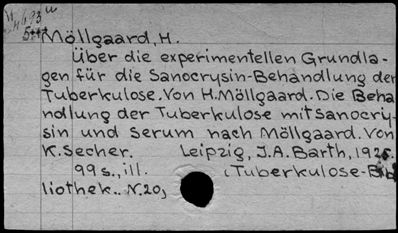 Möllgaard, H.
Über die experimentellen Grundla-
gen für die Sanocrysin-Behandlung der
Tuberkulose. Von H. Möllgaard. Die Beha
ndlung der Tuberkulose mit Sanocry-
sin und Serum nach Möllgaard. Von
K. Secher. Leipzig, J.A. Barth, 1925.
99 s., ill. (Tuberkulose-Bib
liothek.. N. 20)